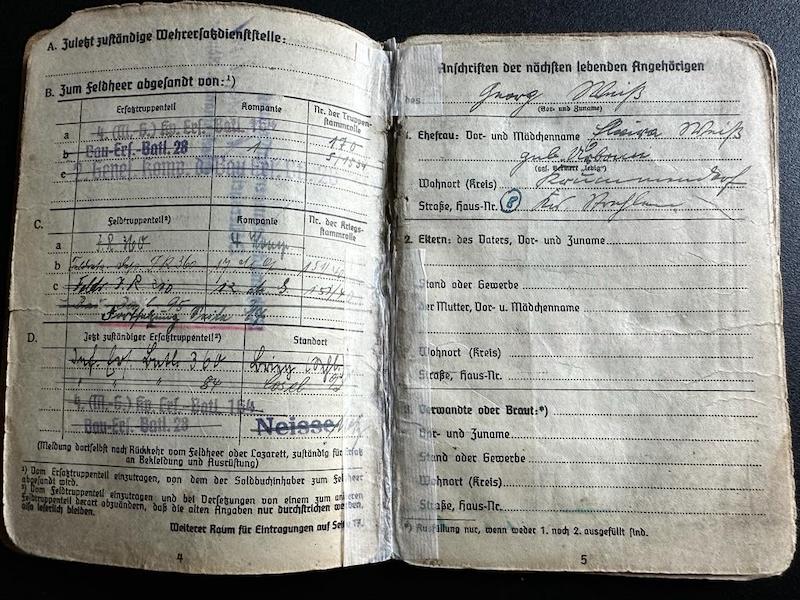 A. Zuletzt zuständige Wehrersatzdienststelle:
B. Zum Feldheer abgesandt von:¹)
Ersatztruppenteil
Kompanie
Nr. der Truppenstammrolle
a 4. (M. G.) Kp. Ers. Batl. 164 170
b Bau-Ers.-Batl. 28 1
c 2. Genes. Komp.
C.
Feldtruppenteil²)
Kompanie
Nr. der Kriegsstammrolle
a I.R 360 4. Komp
b I.R 360
c
Fortsetzung Seite
D.
Jetzt zuständiger Ersatztruppenteil²)
Standort
Inf. Ers. Batl. 360 Brieg
" " " 84 Cosel
4. (M. G.) Kp. Ers. Batl. 164
Bau-Ers.-Batl. 28 Neisse
(Meldung dortselbst nach Rückkehr vom Feldheer oder Lazarett, zuständig für Ersatz
an Bekleidung und Ausrüstung)
¹) Vom Ersatztruppenteil einzutragen, von dem der Soldbuchinhaber zum Feldheer
abgesandt wird.
²) Vom Feldtruppenteil einzutragen und bei Versetzungen von einem zum anderen
Feldtruppenteil derart abzuändern, daß die alten Angaben nur durchstrichen werden,
also leserlich bleiben.
Weiterer Raum für Eintragungen auf Seite 17.
4
Anschriften der nächsten lebenden Angehörigen
des Georg Weiß
(Vor- und Zuname)
1. Ehefrau: Vor- und Mädchenname Elvira Weiß
geb. Urbann
(ggf. Vermerk „ledig")
Wohnort (Kreis) Krummendorf
Straße, Haus-Nr. 8 Krs Strehlen
2. Eltern: des Vaters, Vor- und Zuname
Stand oder Gewerbe
der Mutter, Vor- u. Mädchenname
Wohnort (Kreis)
Straße, Haus-Nr.
3. Verwandte oder Braut:*)
Vor- und Zuname
Stand oder Gewerbe
Wohnort (Kreis)
Straße, Haus-Nr.
*) Ausfüllung nur, wenn weder 1. noch 2. ausgefüllt sind.
5